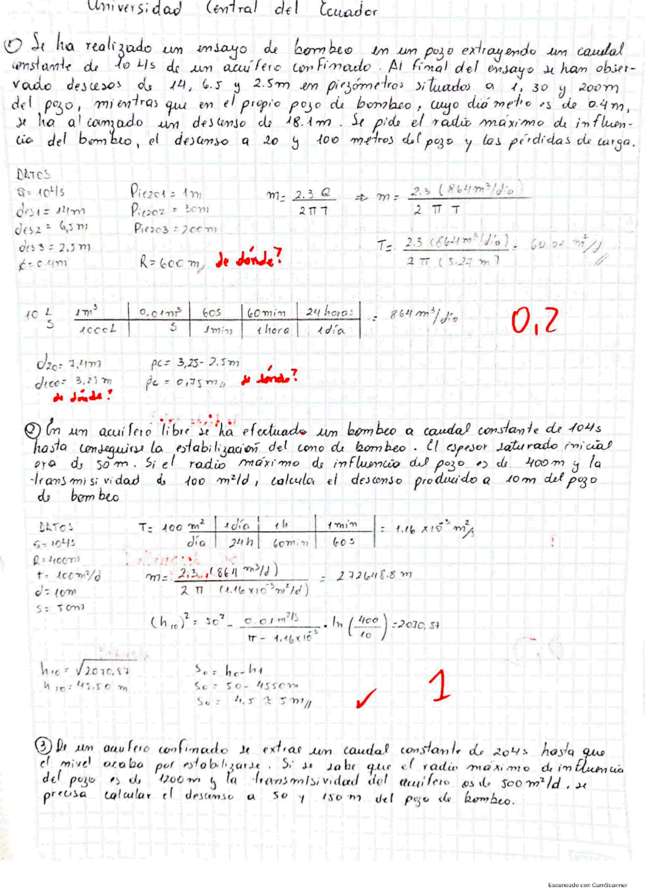 Universidad Central del Ecuador
① Se ha realizado un ensayo de bombeo en un pozo extrayendo un caudal
constante de 10 L/s de un acuífero confinado. Al final del ensayo se han obser-
vado descesos de 14, 6.5 y 2.5m en piezómetros situados a 1, 30 y 200m
del pozo, mientras que en el propio pozo de bombeo, cuyo diámetro es de 0.4m,
se ha alcanzado un descenso de 18.1m. Se pide el radio máximo de influen-
cia del bombeo, el descenso a 20 y 100 metros del pozo y las pérdidas de carga.
DATOS
Q = 10 L/s Piezo1 = 1m m = 2.3 Q / 2 π T ⇒ m = 2.3 (864 m³/día) / 2 π T
des1 = 14m Piezo2 = 30m
des2 = 6,5 m Piezo3 = 200m
des3 = 2,5 m T = 2.3 (864 m³/día) / 2 π (5.27 m)
= 0.4m R = 600 m de dónde?
10 L/s | 1m³ / 1000L | 0,01m³ / s | 60s / 1min | 60min / 1 hora | 24 horas / 1 día = 864 m³/día 0,2
d20 = 7,4m pc = 3,25 - 2.5m
d100 = 3,25 m pc = 0,75 m // de dónde?
de dónde?
② En un acuífero libre se ha efectuado un bombeo a caudal constante de 10 L/s
hasta conseguirse la estabilización del cono de bombeo. El espesor saturado inicial
era de 50 m. Si el radio máximo de influencia del pozo es de 400 m y la
transmisividad de 100 m²/d, calcula el descenso producido a 10m del pozo
de bombeo
DATOS T = 100 m²/día | 1día / 24h | 1h / 60min | 1min / 60s = 1.16 x 10⁻³ m²/s
Q = 10 L/s
R = 400m
t = 100m²/d m = 2.3 (864 m³/d) / 2 π (1.16x10⁻³ m²/d) = 272648.8 m
d = 10m
s = 50m (h10)² = 50² - 0.01 m³/s / π - 1.16x10⁻³ · ln (400/10) = 2070,87
h10 = √2070,87 S0 = h0 - h1
h10 = 45.50 m S0 = 50 - 45.50m
S0 = 4.5 ≈ 5 m // ✓ 1
③ De un acuífero confinado se extrae un caudal constante de 20 L/s hasta que
el nivel acaba por estabilizarse. Si se sabe que el radio máximo de influencia
del pozo es de 1200 m y la transmisividad del acuífero es de 500 m²/d, se
precisa calcular el descenso a 50 y 150 m del pozo de bombeo.
Escaneado con CamScanner